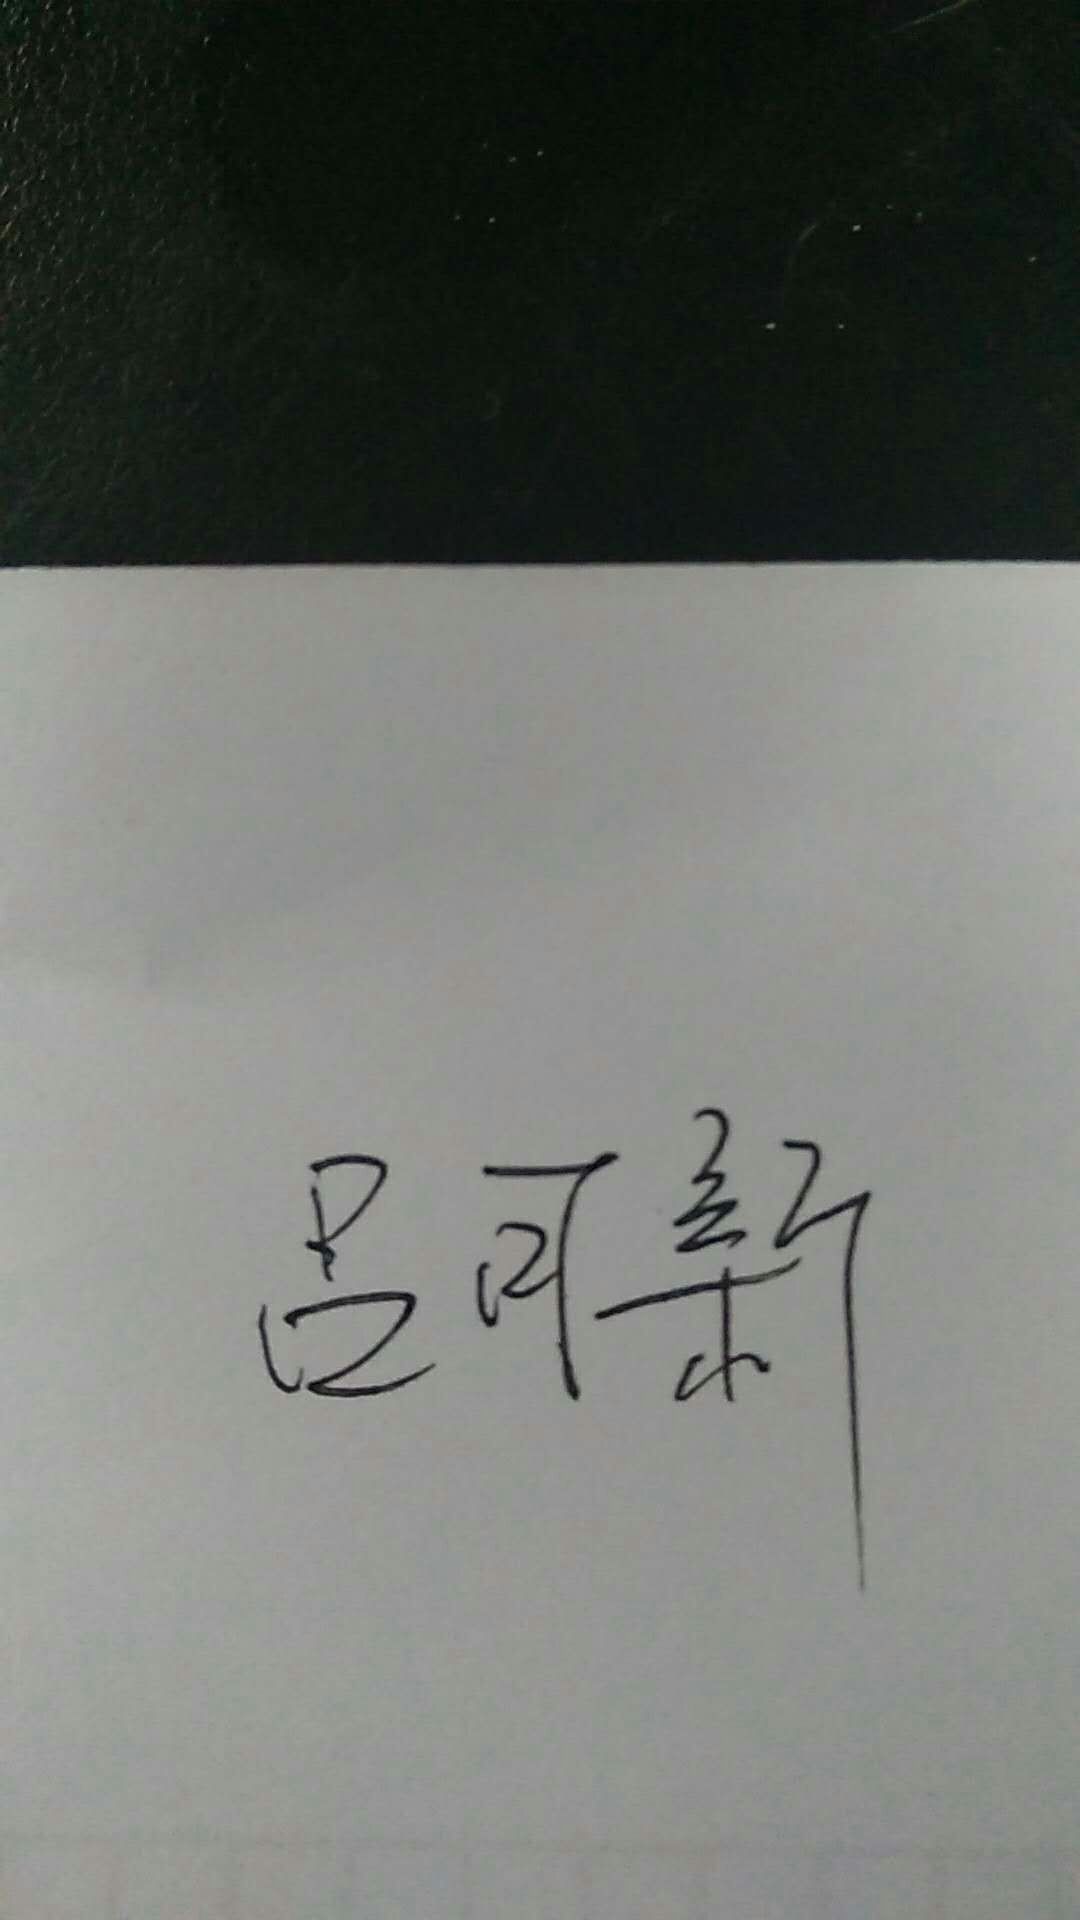 吕可新